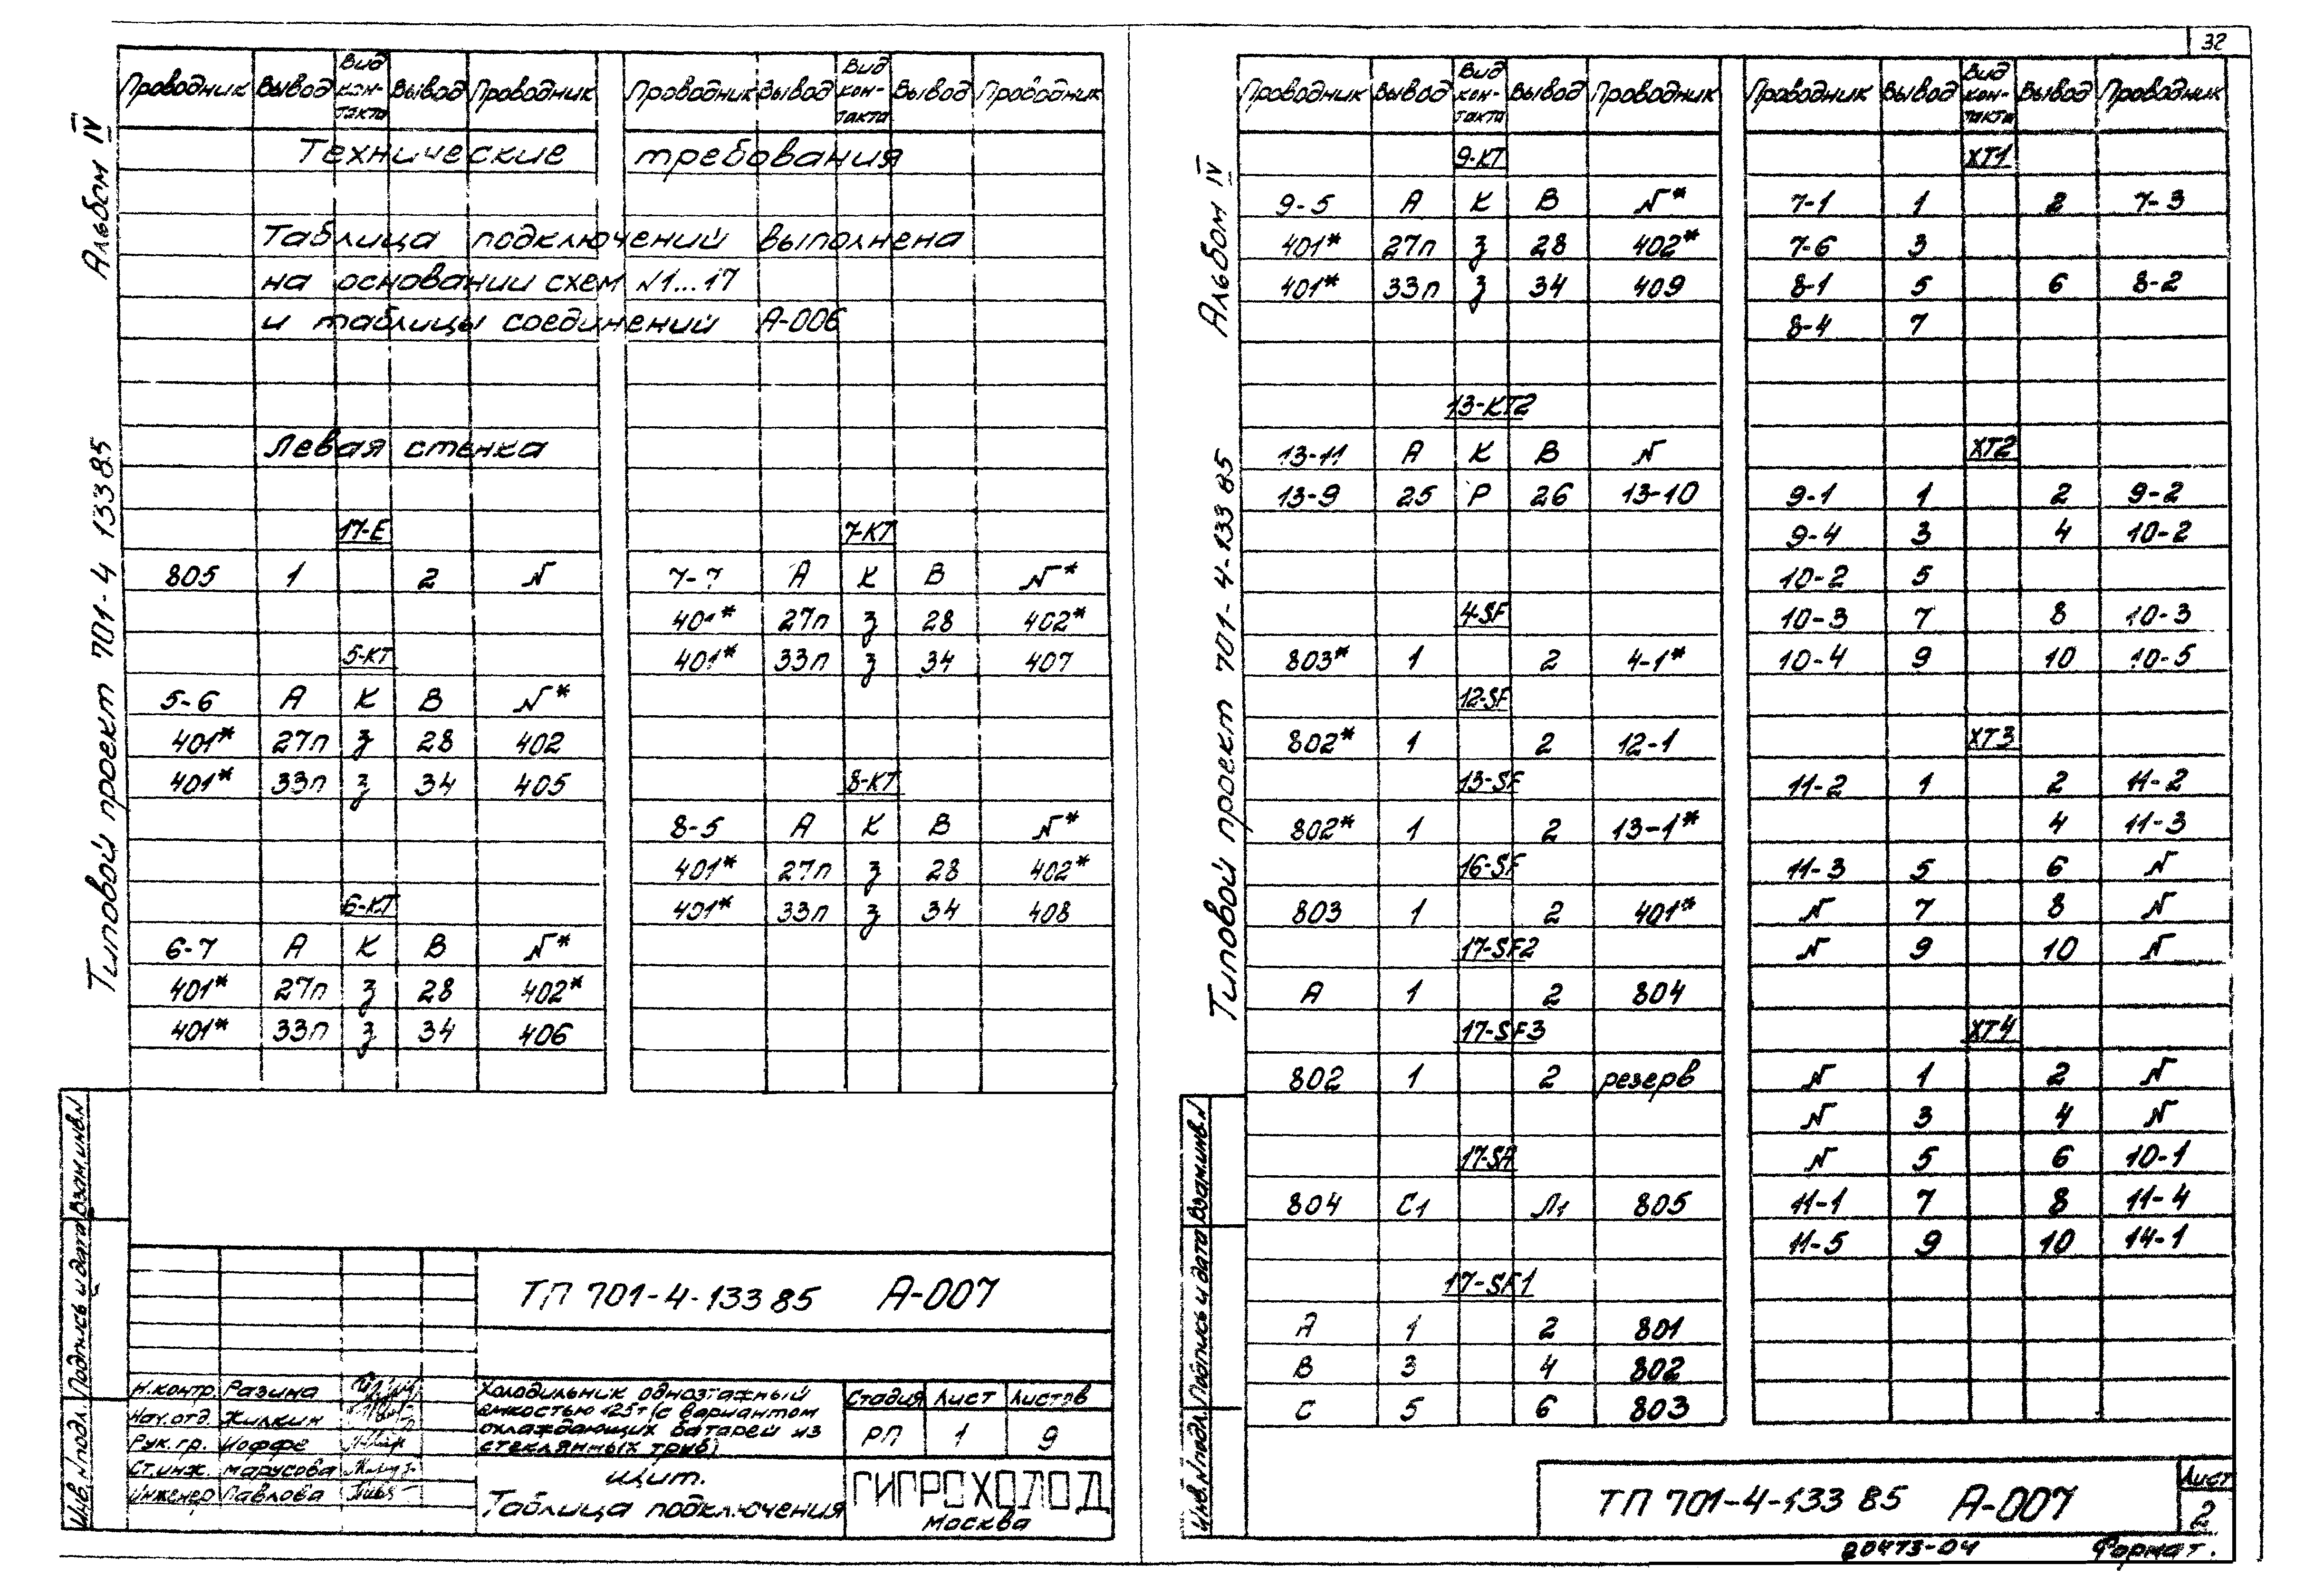 32
Альбом IV
Типовой проект 701-4 133 85
Проводник Вывод Вид контакта Вывод Проводник Проводник Вывод Вид контакта Вывод Проводник
Технические требования
Таблица подключений выполнена
на основании схем N1...17
и таблицы соединений А-006
Левая стенка
17-Е
805 1 2 N
5-КТ
5-6 А К В N*
401* 27п з 28 402
401* 33п з 34 405
6-КТ
6-7 А К В N*
401* 27п з 28 402*
401* 33п з 34 406
7-КТ
7-7 А К В N*
401* 27п з 28 402*
401* 33п з 34 407
8-КТ
8-5 А К В N*
401* 27п з 28 402*
401* 33п з 34 408
Инв. N подл. Подпись и дата Взам.инв.N
ТП 701-4-133 85 А-007
Н.контр. Разина
Нач.отд. Жилкин
Рук.гр. Иоффе
Ст.инж. Марусова
Инженер Павлова
Холодильник одноэтажный
емкостью 125т (с вариантом
охлаждающих батарей из
стеклянных труб)
Щит.
Таблица подключения
Стадия Лист Листов
РП 1 9
ГИПРОХОЛОД
Москва
Альбом IV
Типовой проект 701-4-133 85
Проводник Вывод Вид контакта Вывод Проводник Проводник Вывод Вид контакта Вывод Проводник
9-КТ
9-5 А К В N*
401* 27п з 28 402*
401* 33п з 34 409
13-КТ2
13-11 А К В N
13-9 25 Р 26 13-10
4-SF
803* 1 2 4-1*
12-SF
802* 1 2 12-1
13-SF
802* 1 2 13-1*
16-SF
803 1 2 401*
17-SF2
А 1 2 804
17-SF3
802 1 2 резерв
17-SA
804 С1 Л1 805
17-SF1
А 1 2 801
В 3 4 802
С 5 6 803
ХТ1
7-1 1 2 7-3
7-6 3
8-1 5 6 8-2
8-4 7
ХТ2
9-1 1 2 9-2
9-4 3 4 10-2
10-2 5
10-3 7 8 10-3
10-4 9 10 10-5
ХТ3
11-2 1 2 11-2
4 11-3
11-3 5 6 N
N 7 8 N
N 9 10 N
ХТ4
N 1 2 N
N 3 4 N
N 5 6 10-1
11-1 7 8 11-4
11-5 9 10 14-1
Инв.N подл. Подпись и дата Взам.инв.N
ТП 701-4-133 85 А-007
Лист
2
20473-04 Формат.